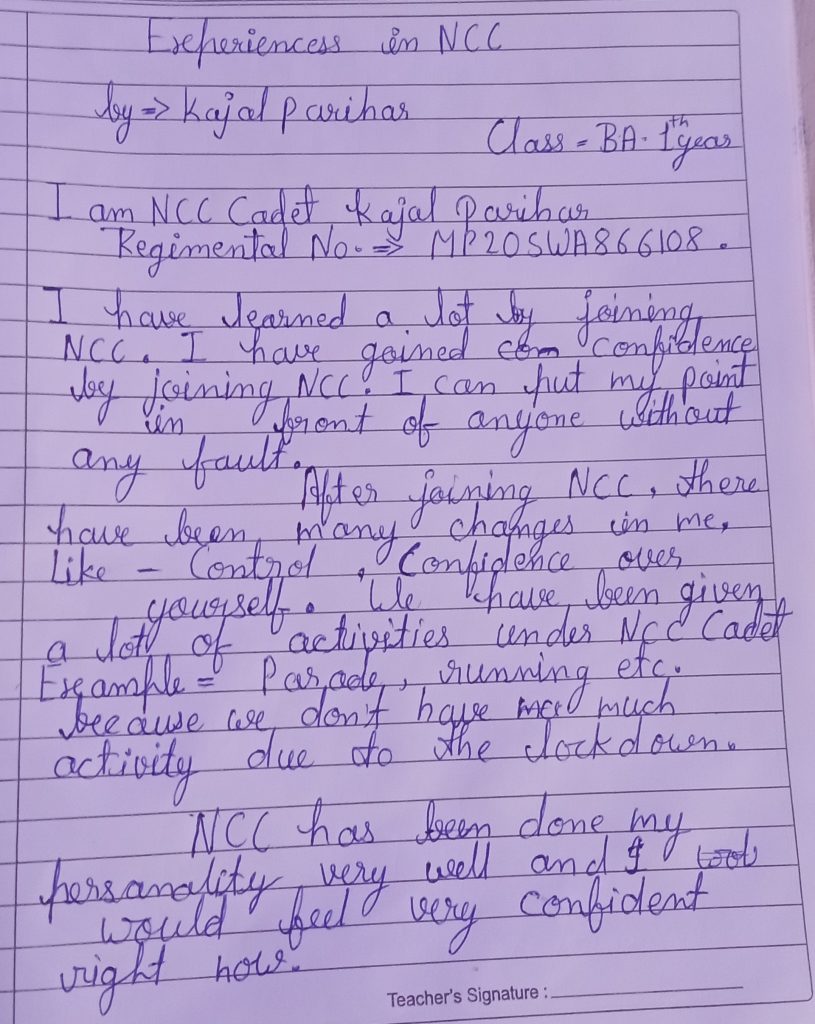 Experiencess in NCC
by => Kajal Parihar
Class = BA. 1th year
I am NCC Cadet Kajal Parihar
Regimental No. => MP20SWA866108.
I have learned a lot by joining
NCC. I have gained com confidence
by joining NCC. I can put my point
in front of anyone without
any fault.
After joining NCC, there
have been many changes in me,
Like - Control, Confidence over
yourself. We have been given
a lot of activities under NCC Cadet
Example = Parade, running etc.
because we don't have much
activity due to the lockdown.
NCC has been done my
personality very well and I
would feel very confident
right now.
Teacher's Signature :